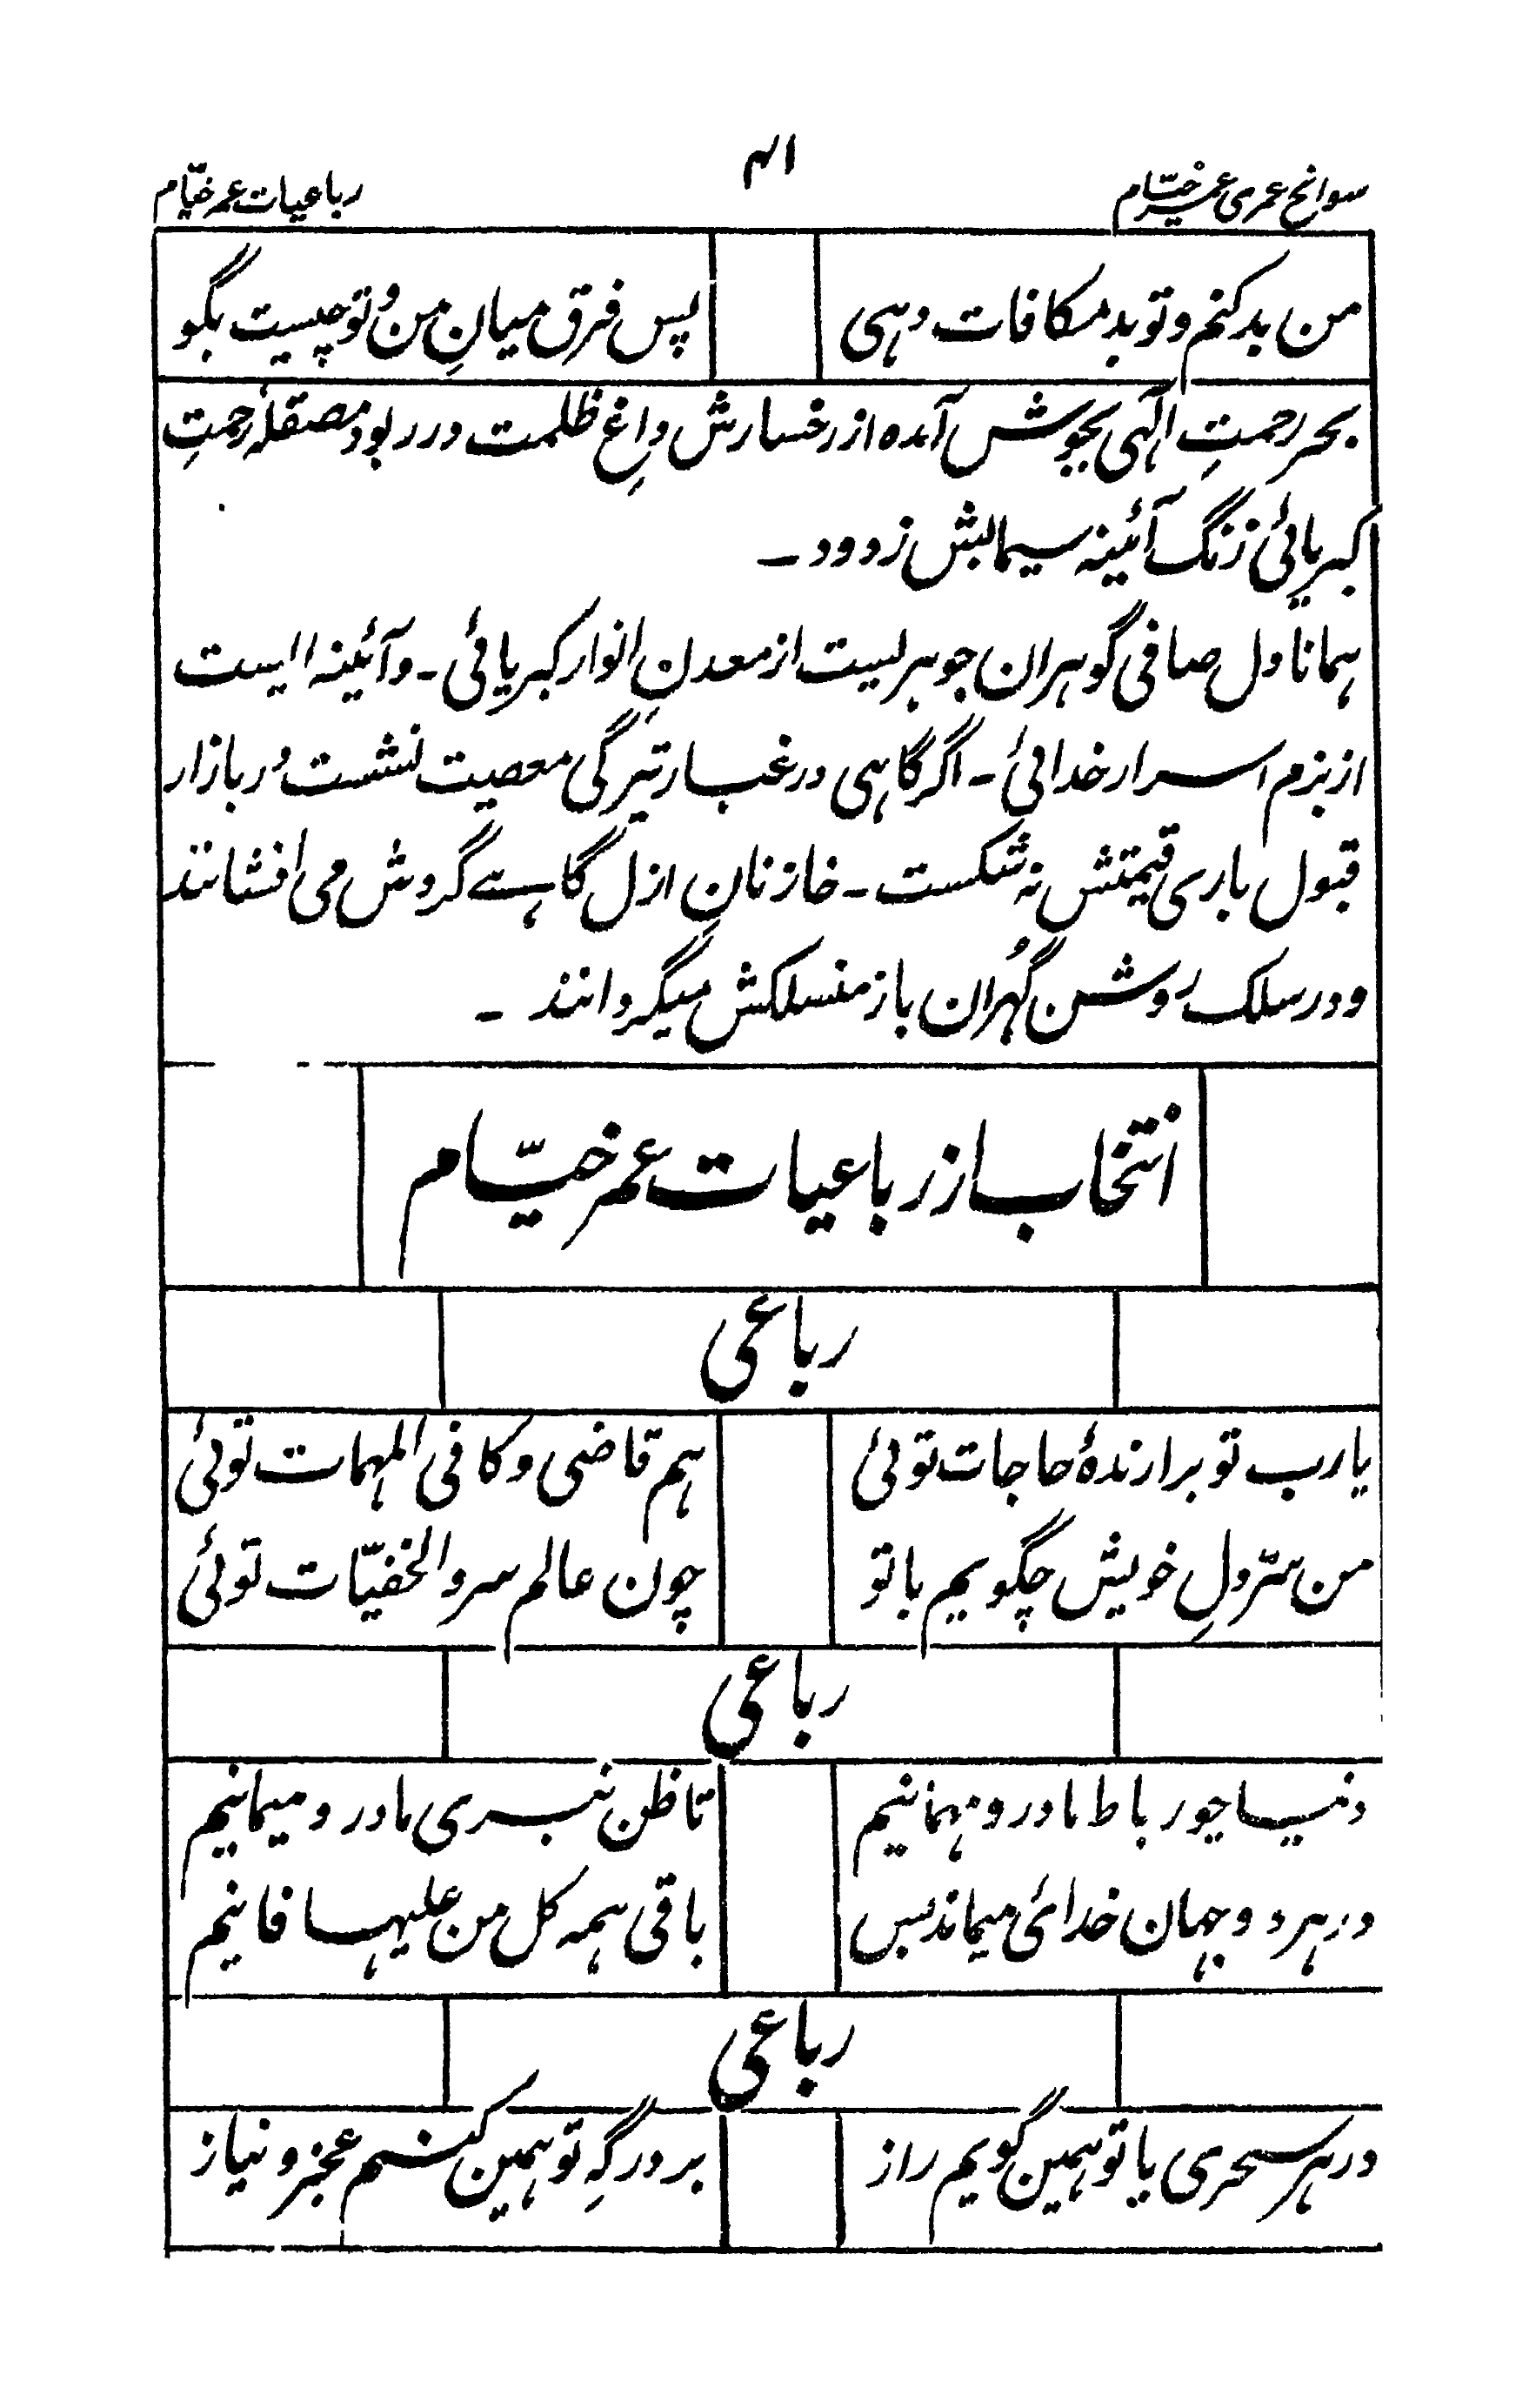 سوانح عمری عمر خیّام
۴۱
رباعیات عمر خیّام
من بد کنم و تو بد مکافات دہی
پس فرق میانِ من وُ تو چیست بگو
بحر رحمتِ الٰہی بجوش آمدہ از رخسارش داغِ ظلمت در ربود مصقلۂ رحمتِ
کبریائی زنگ آئینہ سیمایش زدود ۔
ہمانا دل صافی گوہران جوہریست از معدنِ انوار کبریائی ۔ و آئینہ ایست
از بزم اسرار خدائی ۔ اگر گاہی در غبار تیرگی معصیت نشست وُ ر بازار
قبول باری قیمتش نہ شکست ۔ خازنانِ ازل گاہے گردش می افشانند
و در سلک روشن گُہران باز منسلکش میگردانند ۔
انتخاب از رباعیات عمر خیّام
رباعی
یا رب تو برازندۂ حاجات توئی
ہم قاضی و کافی المہمات توئی
من سرّ دلِ خویش چگویم با تو
چون عالم سر و الخفیّات توئی
رباعی
دنیا چو رباط ما درو مہمانیم
تا ظن نبری ما درو میمانیم
در ہر دو جہان خدائی میماند بس
باقی ہمہ کل من علیہا فانیم
رباعی
در ہر سحری با تو ہمین گویم راز
بر درگہِ تو ہمین کنم عجز و نیاز